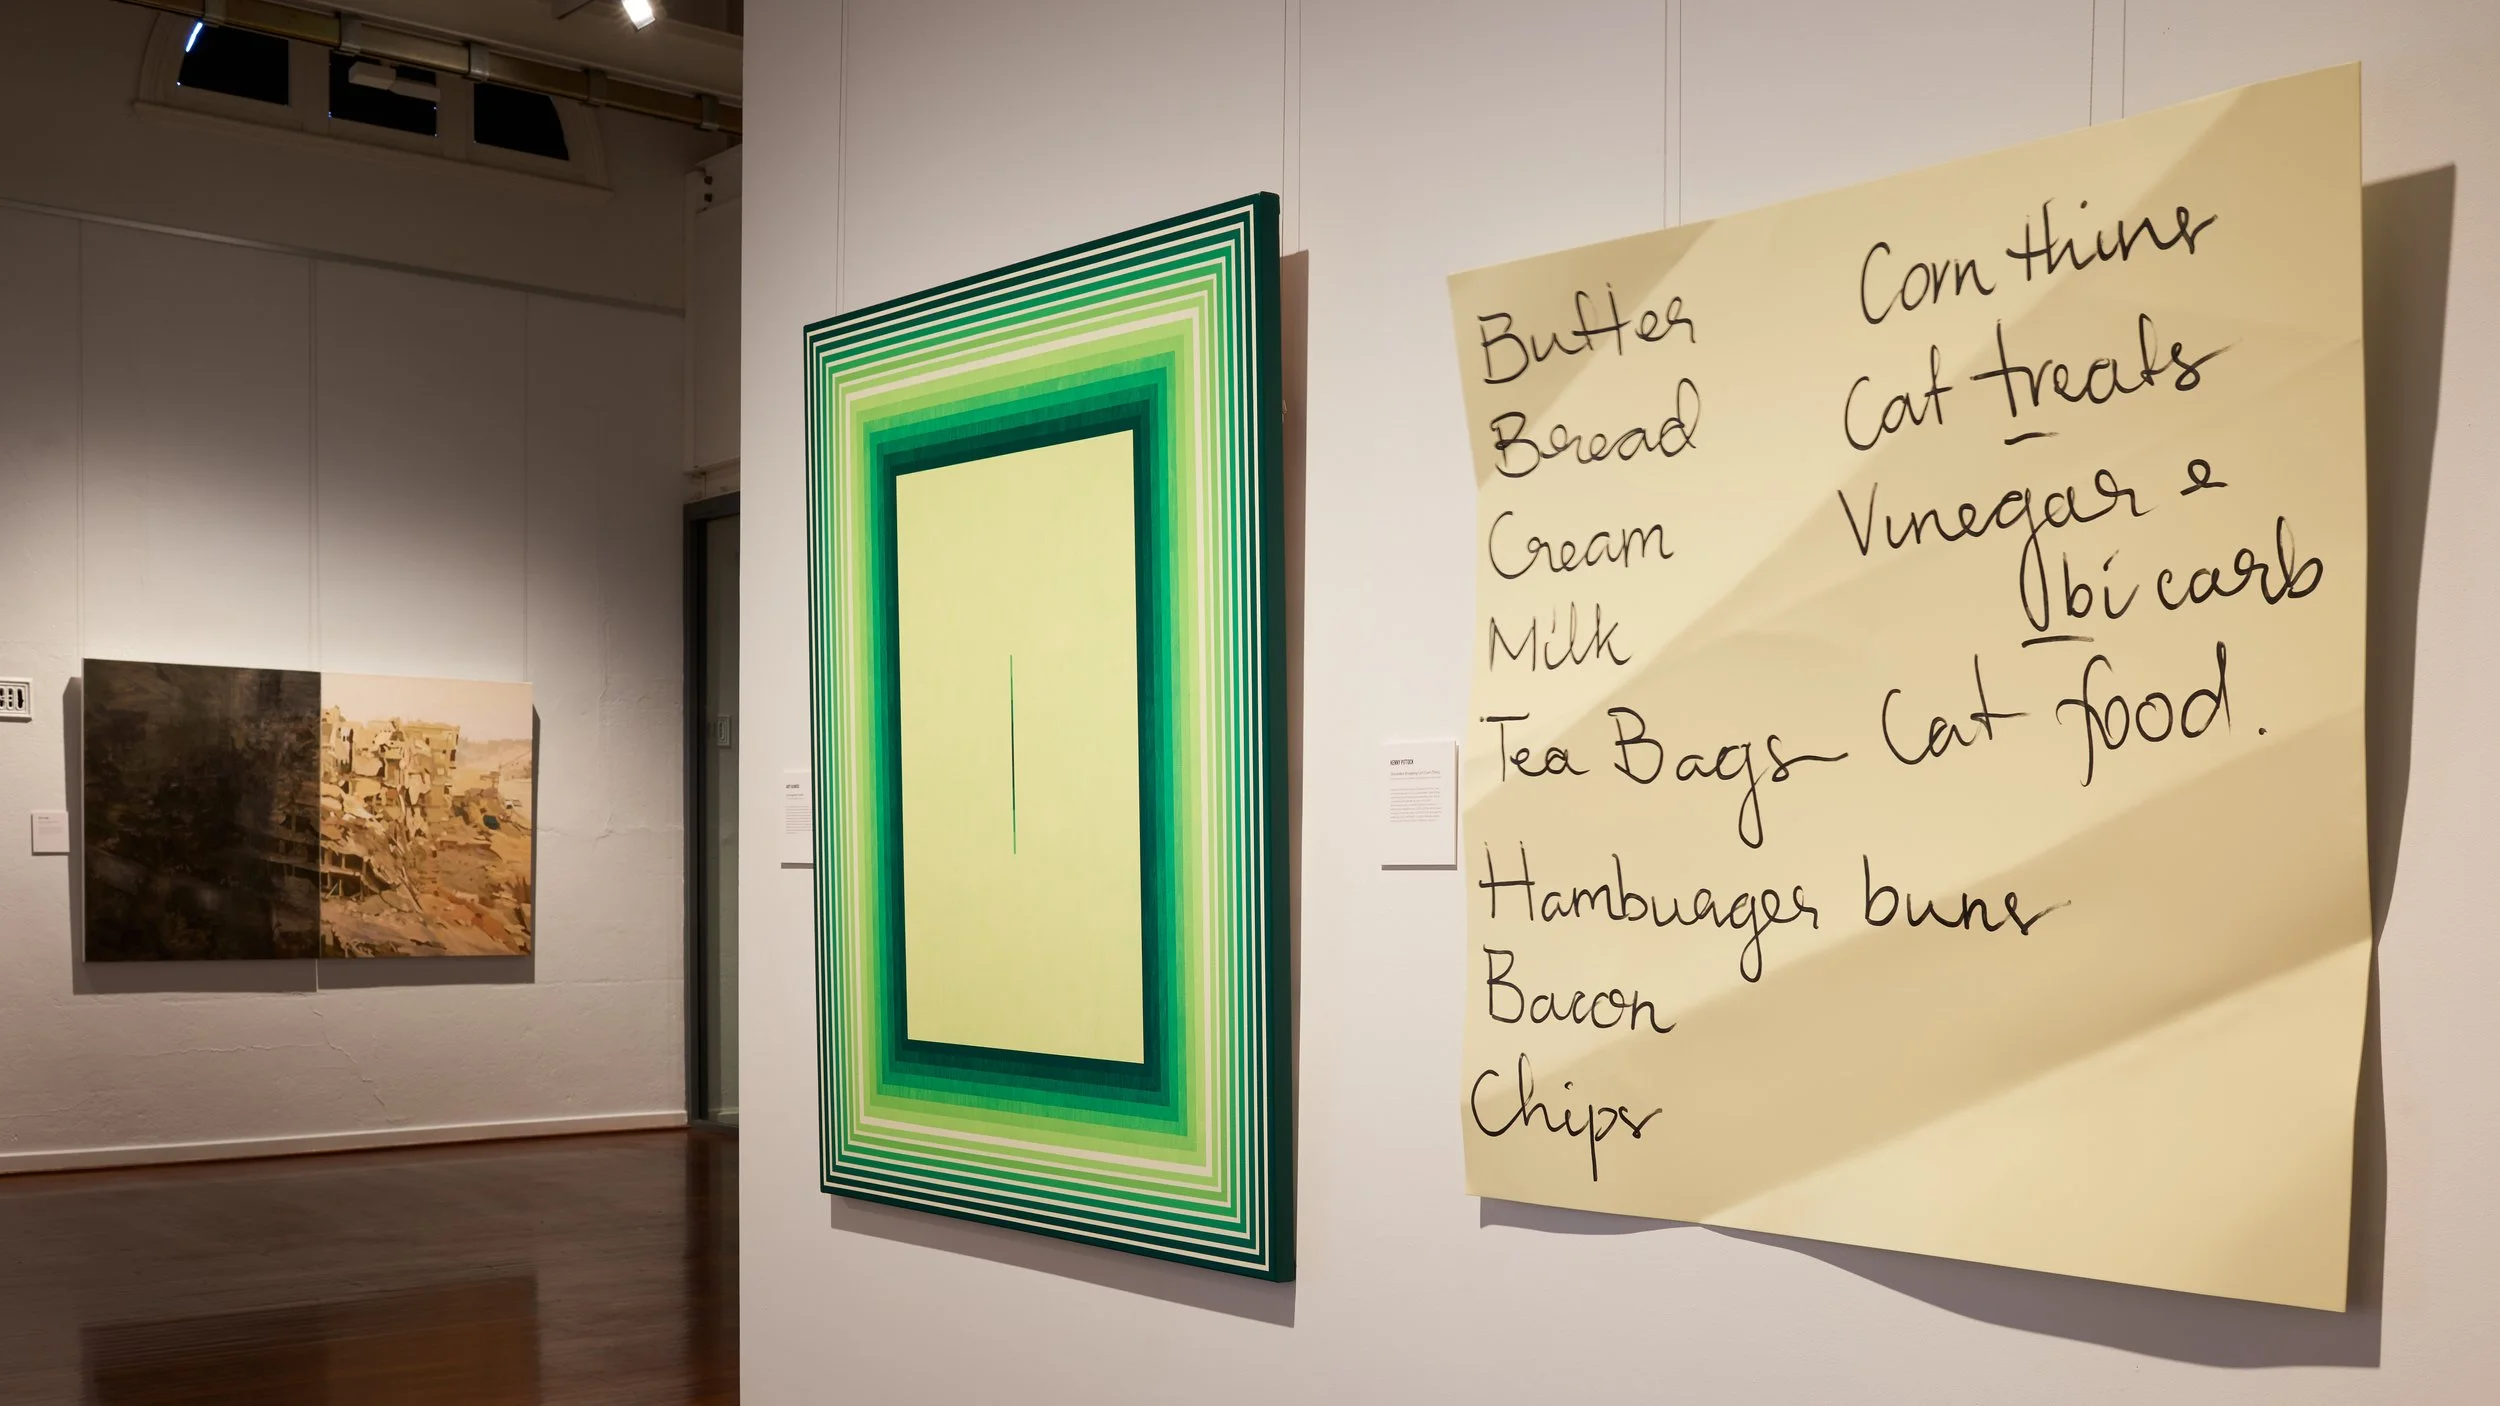 Butter
Bread
Cream
Milk
Tea Bags
Hamburger buns
Bacon
Chips
Corn thins
Cat treats
Vinegar &
bi carb
Cat food.
KENNY PITTOCK